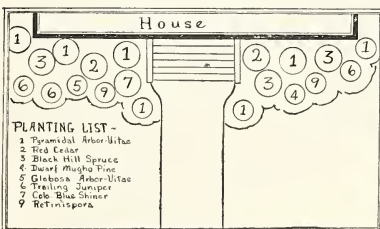 House
1 3 1 2 1
6 6 5 9 7 1
2 1 3 1
3 4 9 6
1
PLANTING LIST -
1 Pyramidal Arbor-Vitae
2 Red Cedar
3 Black Hill Spruce
4 Dwarf Mugho Pine
5 Globosa Arbor-Vitae
6 Trailing Juniper
7 Colo Blue Shiner
9 Retinispora